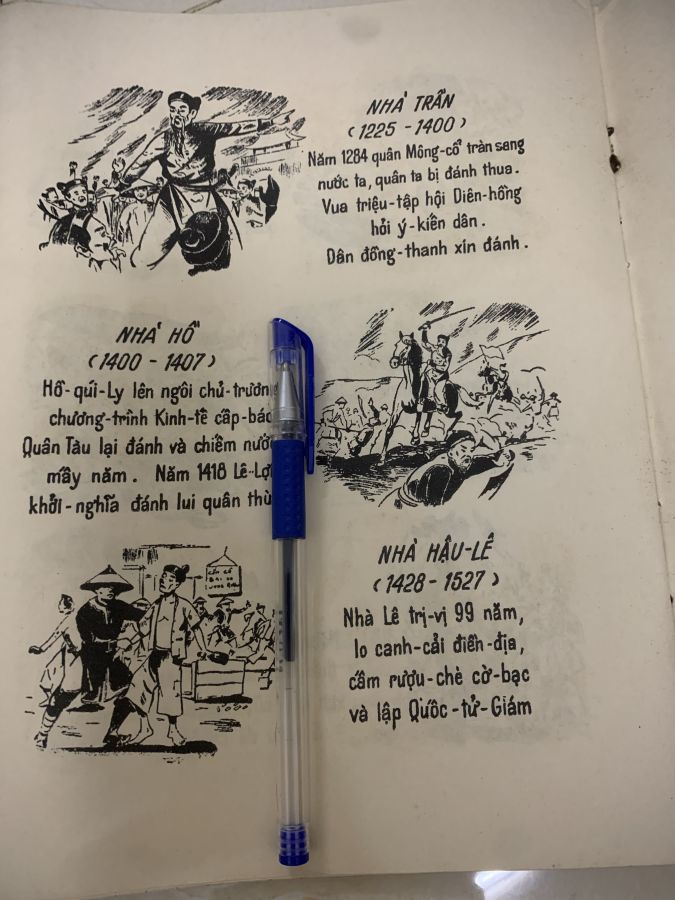 NHÀ TRẦN
(1225 - 1400)
Năm 1284 quân Mông-cổ tràn sang
nước ta, quân ta bị đánh thua.
Vua triệu-tập hội Diên-hồng
hỏi ý-kiến dân.
Dân đồng-thanh xin đánh.
NHÀ HỒ
(1400 - 1407)
Hồ-qúi-Ly lên ngôi chủ-trương
chương-trình Kinh-tế cấp-bác
Quân Tàu lại đánh và chiếm nước
mấy năm. Năm 1418 Lê-Lợi
khởi-nghĩa đánh lui quân thù
NHÀ HẬU-LÊ
(1428 - 1527)
Nhà Lê trị-vị 99 năm,
lo canh-cải điền-địa,
cấm rượu-chè cờ-bạc
và lập Quốc-tử-Giám
CẤM CỜ